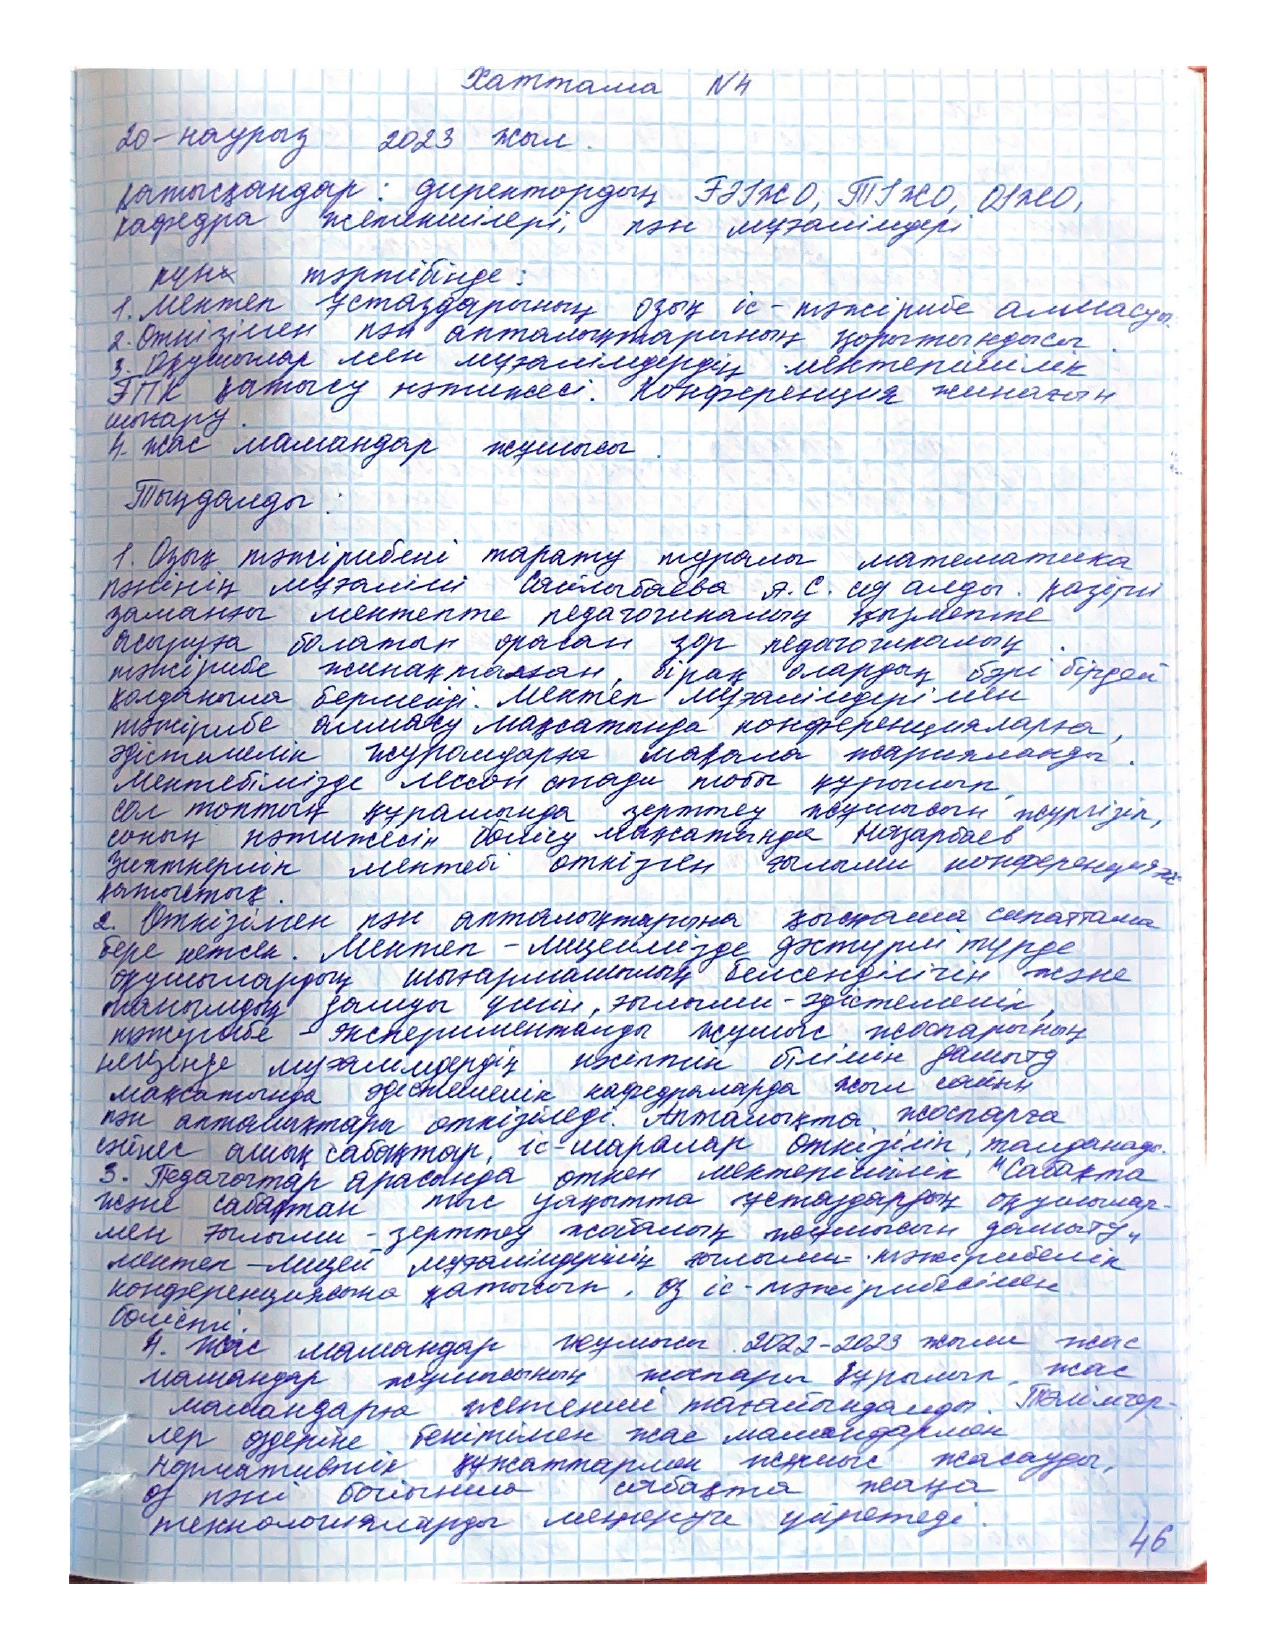 Хаттама N4
20-наурыз 2023 жыл.
Қатысқандар: директордың ҒӘІЖО, ТІЖО, ОІЖО,
кафедра жетекшілері, пән мұғалімдері
күн тәртібінде:
1. Мектеп ұстаздарының озық іс-тәжірибе алмасуы.
2. Өткізілген пән апталықтарының қорытындысы.
3. Оқушылар мен мұғалімдердің мектепішілік
ҒПК қатысу нәтижесі. Конференция жинағын
шығару.
4. Жас мамандар жұмысы.
Тыңдалды:
1. Озық тәжірибені тарату туралы математика
пәнінің мұғалімі Сайлыбаева А.С. сөз алды. Қазіргі
заманғы мектепте педагогикалық қызметте
асыруға болатын орасан зор педагогикалық
тәжірибе жинақталған, бірақ олардың бәрі бірдей
қолданыла бермейді. Мектеп мұғалімдерімен
тәжірибе алмасу мақсатында конференцияларға,
әдістемелік журналдарға мақала жарияланды.
Мектебімізде лессон стади тобы құрылып,
сол топтың құрамында зерттеу жұмысын жүргізіп,
соның нәтижесін бөлісу мақсатында Назарбаев
Зияткерлік мектебі өткізген ғылыми конференцияға
қатыстық.
2. Өткізілген пән апталықтарына қысқаша сипаттама
бере кетсек. Мектеп-лицейімізде дәстүрлі түрде
оқушылардың шығармашылық белсенділігін және
танымдық дамуы үшін, ғылыми-әдістемелік,
тәжірибе-эксперименталды жұмыс жоспарының
негізінде мұғалімдердің кәсіптік білімін дамыту
мақсатында әдістемелік кафедраларда жыл сайын
пән апталықтары өткізіледі. Апталықта жоспарға
сәйкес ашық сабақтар, іс-шаралар өткізіліп, талданады.
3. Педагогтар арасында өткен мектепішілік "Сабақта
және сабақтан тыс уақытта ұстаздардың оқушылар-
мен ғылыми-зерттеу жобалық жұмысын дамыту"
мектеп-лицей мұғалімдерінің ғылыми-тәжірибелік
конференциясына қатысып, өз іс-тәжірибесімен
бөлісті.
4. Жас мамандар жұмысы. 2022-2023 жылы жас
мамандар жұмысының жоспары құрылып, жас
мамандарға жетекші тағайындалды. Тәлімгер-
лер өздеріне бекітілген жас мамандармен
нормативтік құжаттармен жұмыс жасауды,
өз пәні бойынша сабақта жаңа
технологияларды меңгеруге үйретеді.
46